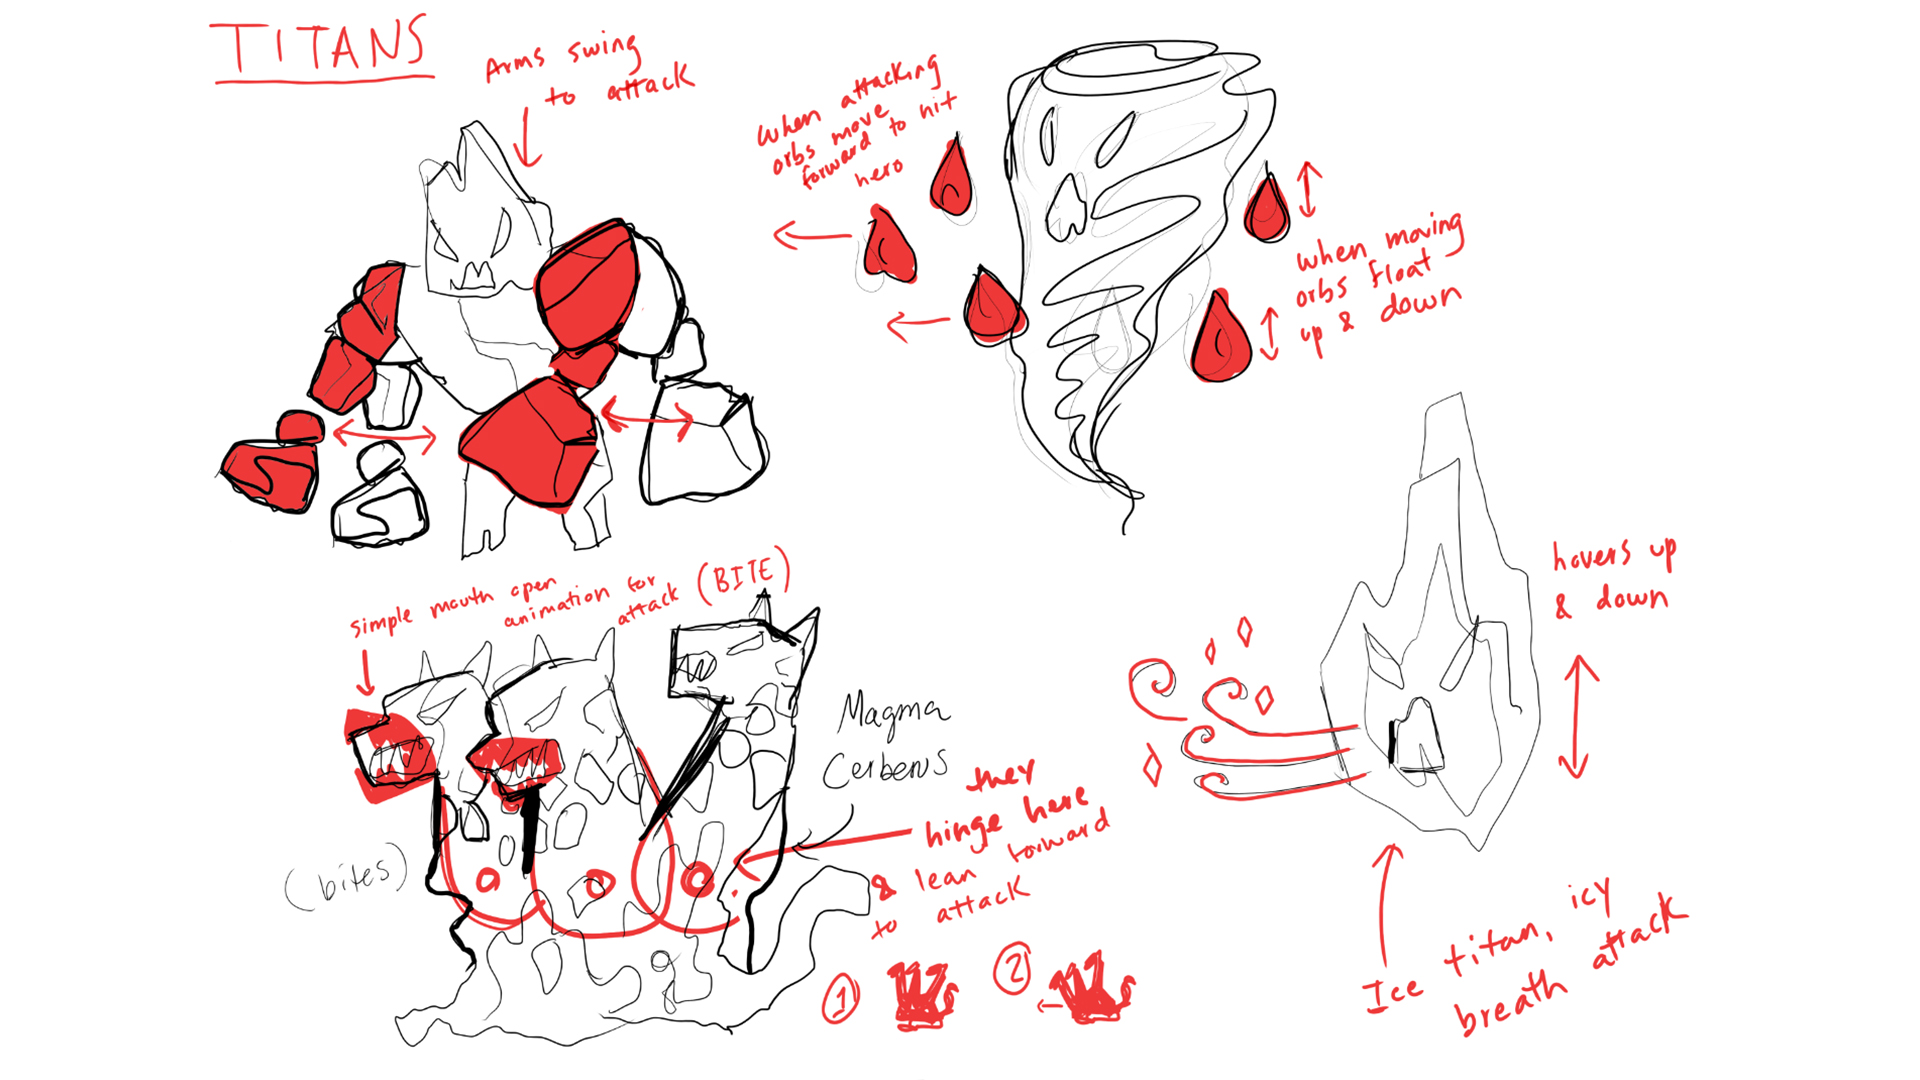 TITANS
Arms swing
to attack
When attacking
orbs move
forward to hit
hero
when moving
orbs float
up & down
hovers up
& down
simple mouth open
animation for
attack (BITE)
Magma
Cerberus
they
hinge here
& lean forward
to attack
(bites)
1
2
Ice titan, icy
breath attack